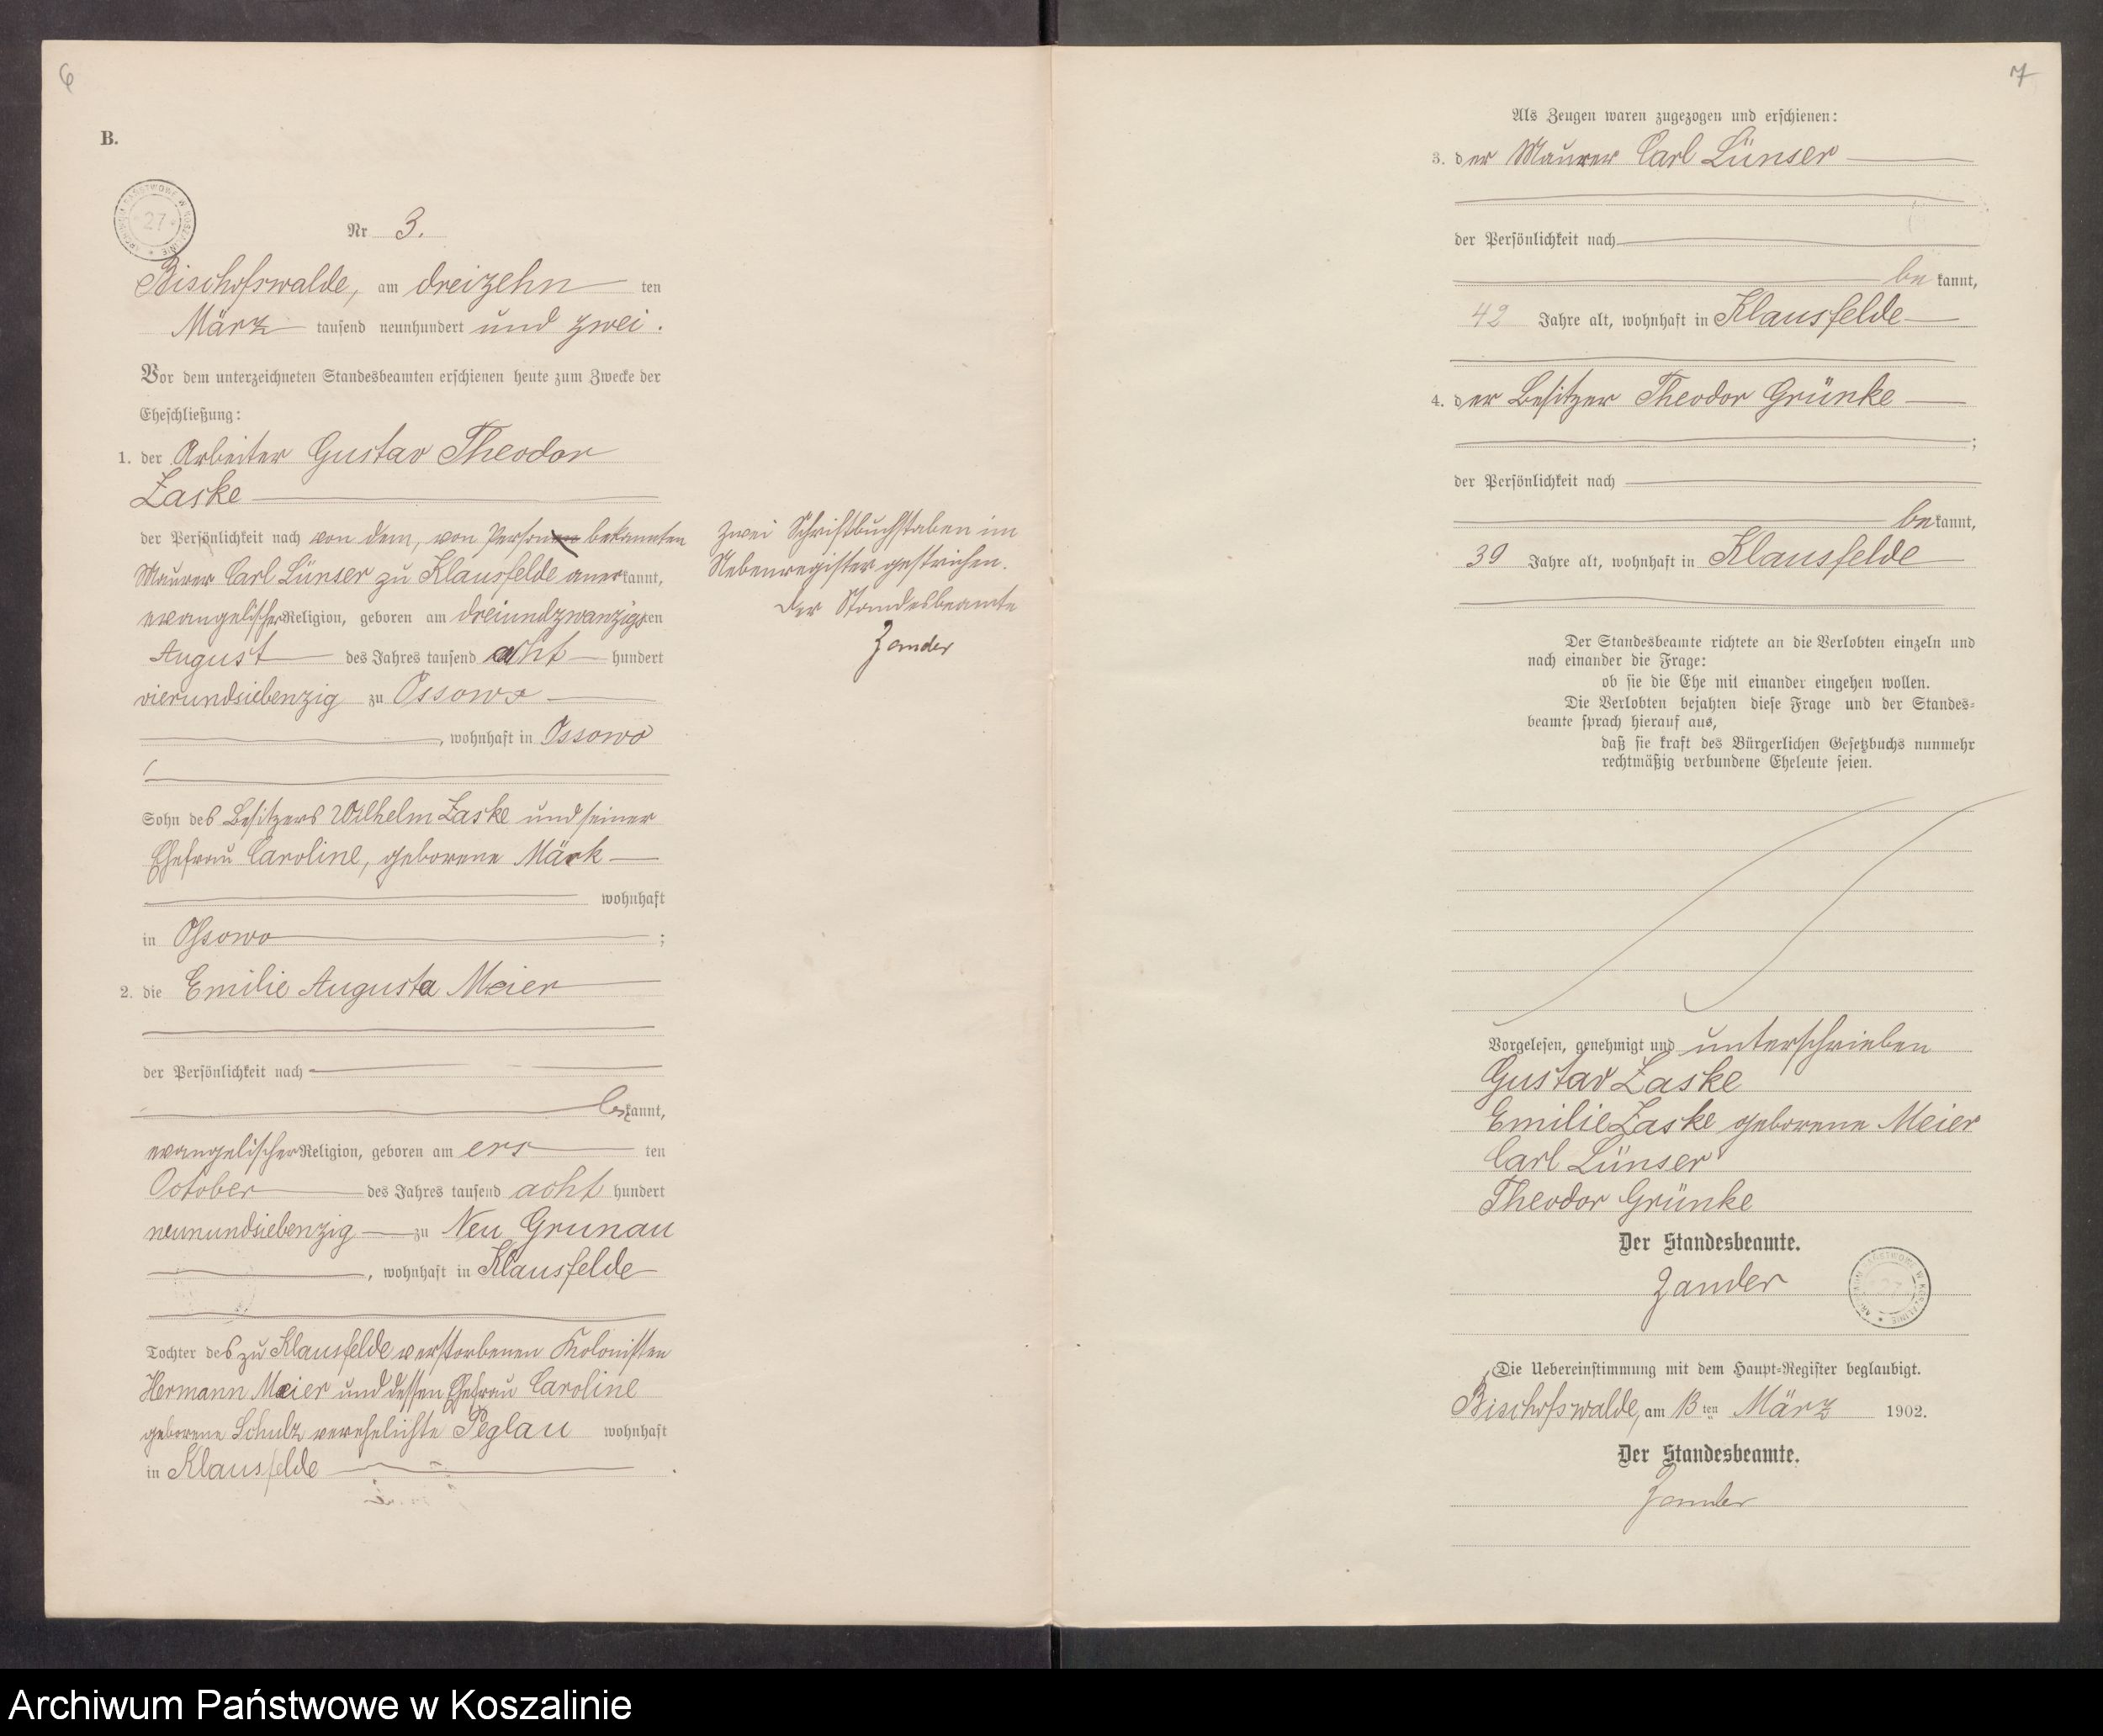 6
B.
ARCHIWUM PAŃSTWOWE W KOSZALINIE * 27 *
Nr 3.
Bischofswalde, am dreizehn ten
März tausend neunhundert und zwei.
Vor dem unterzeichneten Standesbeamten erschienen heute zum Zwecke der
Eheschließung:
1. der Arbeiter Gustav Theodor
Zaske
der Persönlichkeit nach von dem, von Personen bekannten
Maurer Carl Lünser zu Klausfelde anerkannt,
evangelischer Religion, geboren am dreiundzwanzigsten
August des Jahres tausend acht hundert
vierundsiebenzig zu Ossowo
, wohnhaft in Ossowo
Sohn des Besitzers Wilhelm Zaske und seiner
Ehefrau Caroline, geborene Märk
wohnhaft
in Ossowo ;
2. die Emilie Augusta Meier
der Persönlichkeit nach
bekannt,
evangelischer Religion, geboren am ers ten
October des Jahres tausend acht hundert
neunundsiebenzig zu Neu Grunau
, wohnhaft in Klausfelde
Tochter des zu Klausfelde verstorbenen Kolonisten
Hermann Meier und dessen Ehefrau Caroline
geborene Schulz verehelichte Peglau wohnhaft
in Klausfelde .
Zwei Schriftbuchstaben im
Nebenregister gestrichen.
Der Standesbeamte
Zander
7
Als Zeugen waren zugezogen und erschienen:
3. der Maurer Carl Lünser
der Persönlichkeit nach
bekannt,
42 Jahre alt, wohnhaft in Klausfelde
4. der Besitzer Theodor Grünke
;
der Persönlichkeit nach
bekannt,
39 Jahre alt, wohnhaft in Klausfelde
Der Standesbeamte richtete an die Verlobten einzeln und
nach einander die Frage:
ob sie die Ehe mit einander eingehen wollen.
Die Verlobten bejahten diese Frage und der Standes=
beamte sprach hierauf aus,
daß sie kraft des Bürgerlichen Gesetzbuchs nunmehr
rechtmäßig verbundene Eheleute seien.
Vorgelesen, genehmigt und unterschrieben
Gustav Zaske
Emilie Zaske geborene Meier
Carl Lünser
Theodor Grünke
Der Standesbeamte.
Zander
ARCHIWUM PAŃSTWOWE W KOSZALINIE * 27 *
Die Uebereinstimmung mit dem Haupt=Register beglaubigt.
Bischofswalde, am 13ten März 1902.
Der Standesbeamte.
Zander
Archiwum Państwowe w Koszalinie